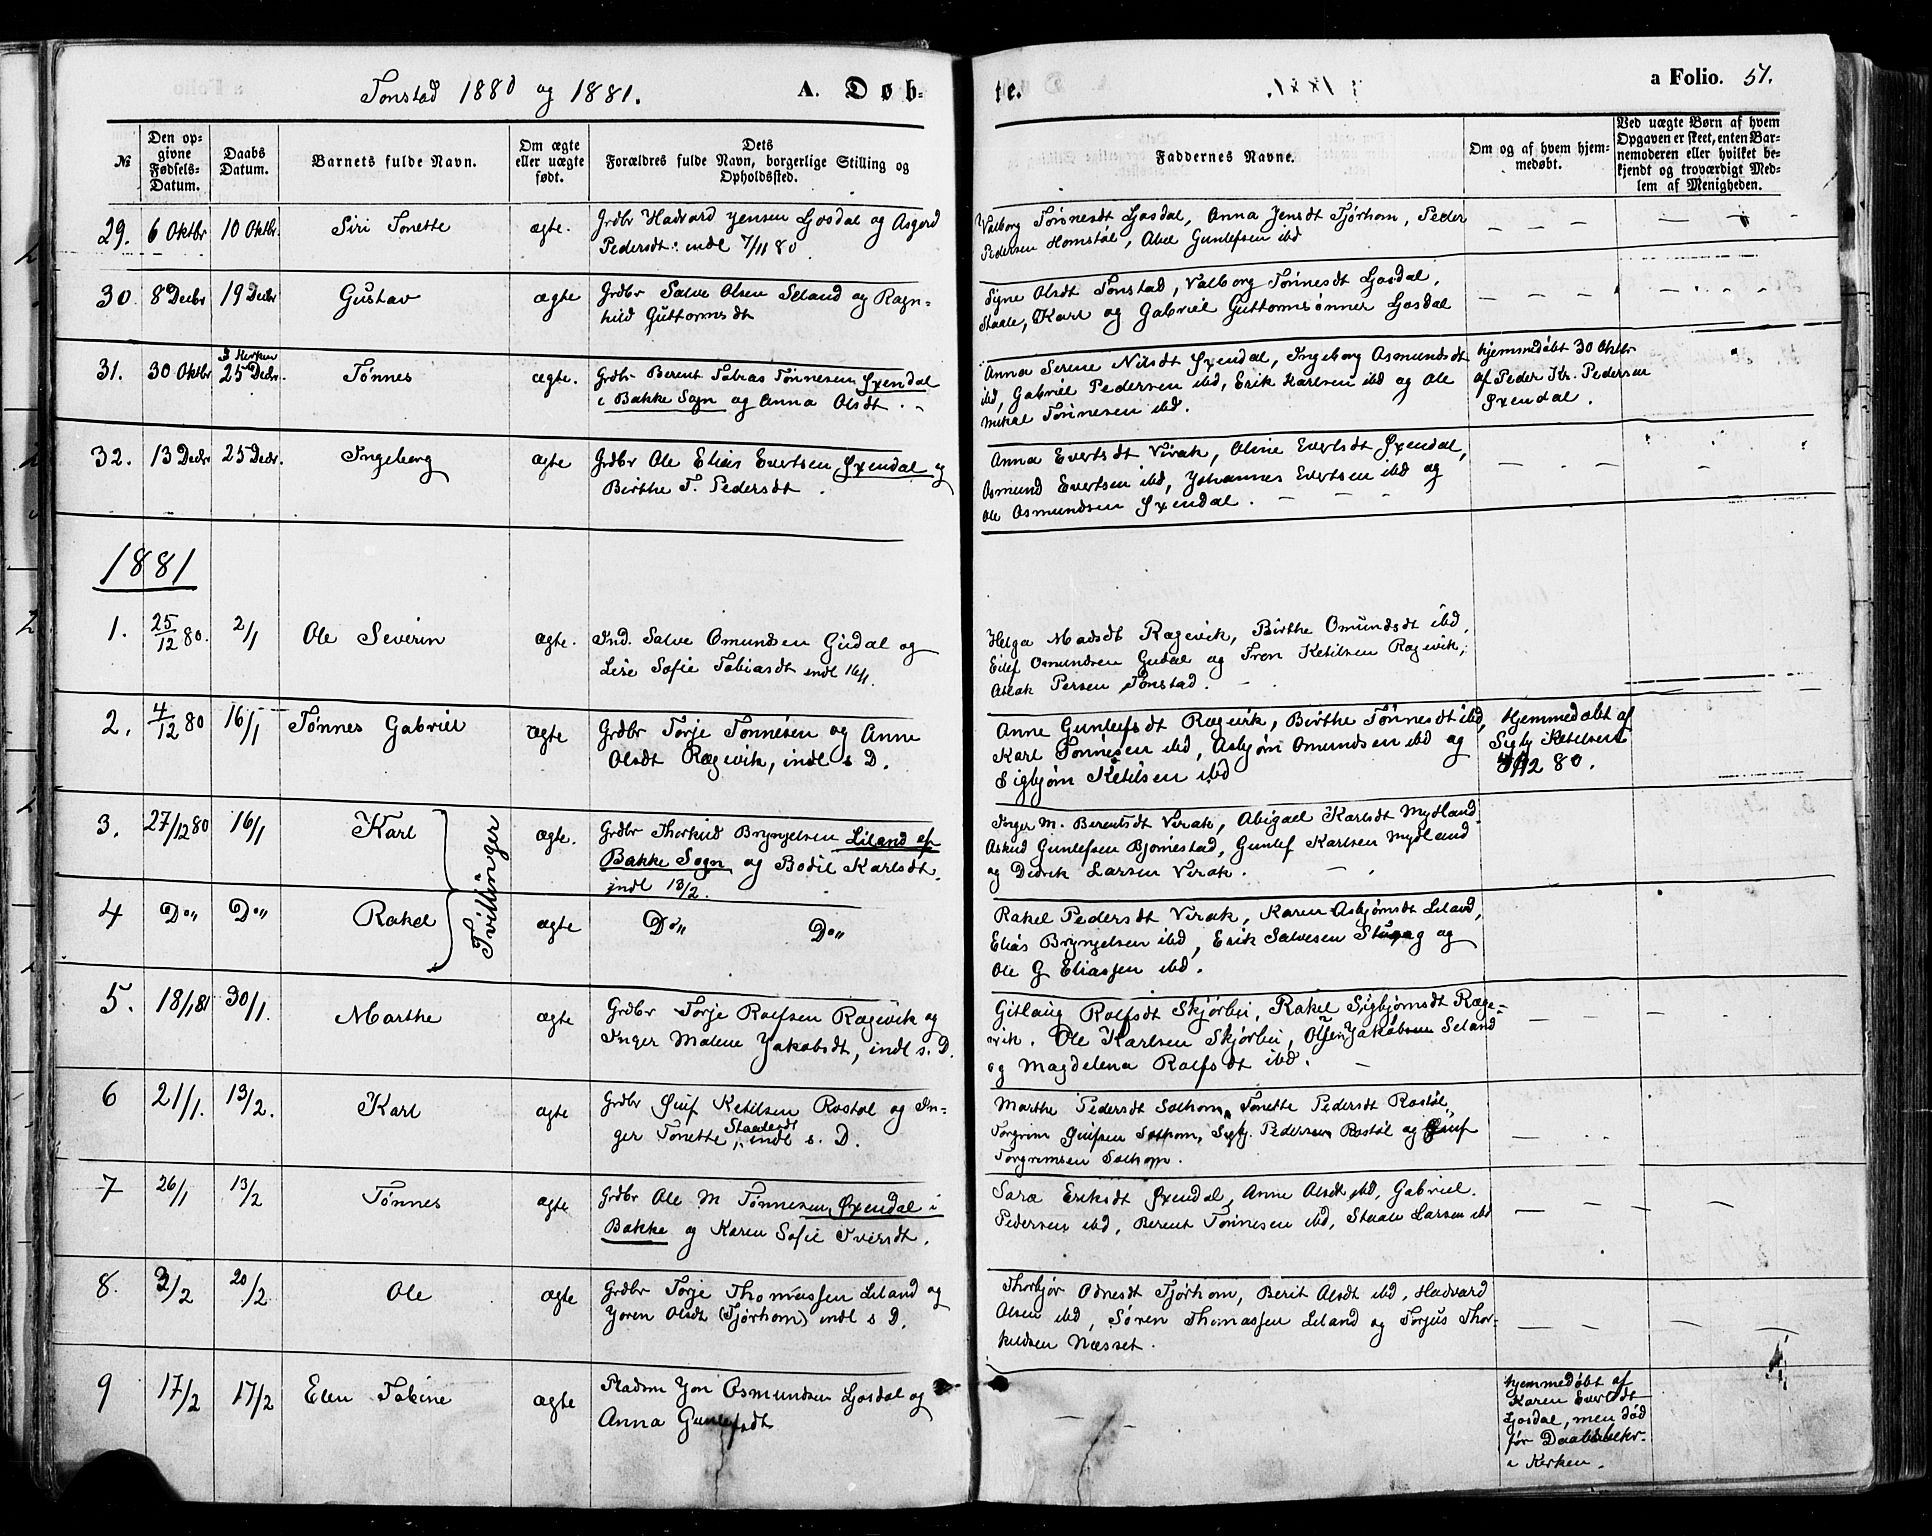 Tonstad 1880 og 1881.
A. Døb-
te.
a Folio. 51.
№
Den op-
givne
Fødsels-
Datum.
Daabs
Datum.
Barnets fulde Navn.
Om ægte
eller uægte
født.
Dets
Forældres fulde Navn, borgerlige Stilling og
Opholdssted.
Faddernes Navne.
Om og af hvem hjem-
medøbt.
Ved uægte Børn af hvem
Opgaven er skeet, enten Bar-
nemoderen eller hvilket be-
kjendt og troværdigt Med-
lem af Menigheden.
29. 6 Oktbr 10 Oktbr. Siri Tonette ægte.
Grdbr Hadvard Jensen Josdal og Asgerd
Pedersdt. indl 7/11 80
Valborg Tønnesdt Josdal, Anna Jensdt Tjørhom, Peder
Pedersen Homstøl, Abel Gunlefsen ibd
30. 8 Decbr 19 Decbr Gustav ægte
Grdbr Salve Olsen Seland og Ragn-
hild Guttormsdt
Signe Olsdt Tonstad, Valborg Tønnesdt Josdal,
Staale, Karl og Gabriel Guttormsønner Josdal
31. 30 Oktbr I Kirken
25 Decbr. Tønnes ægte.
Grdbr Berent Tobias Tønnesen Øxendal
i Bakke Sogn og Anna Olsdt.
Anna Serine Nilsdt Øxendal, Ingeborg Asmundsdt
ibd, Gabriel Pedersen ibd, Erik Karlsen ibd og Ole
Mikal Tønnesen ibd.
hjemmedøbt 30 Oktbr
af Peder Kr. Pedersen
Øxendal.
32. 13 Decbr 25 Decbr. Ingeborg ægte
Grdbr Ole Elias Evertsen Øxendal og
Birthe T. Pedersdt.
Anna Evertsdt Virak, Oline Evertsdt Øxendal,
Osmund Evertsen ibd, Johannes Evertsen ibd og
Ole Osmundsen Øxendal.
1881
1. 25/12 80. 2/1 Ole Severin ægte.
Ind. Salve Omundsen Gudal og
Lise Sofie Tobiasdt indl 16/1.
Helga Madsdt Rægevik, Birthe Omundsdt ibd,
Eilef Osmundsen Gudal og Tron Ketilsen Rægevik,
Aslak Persen Tonstad.
2. 4/12 80 16/1 Tønnes Gabriel ægte
Grdbr Torje Tønnesen og Anne
Olsdt Rægevik, indl s. D.
Anne Gunlefsdt Rægevik, Birthe Tønnesdt ibd,
Karl Tønnesen ibd, Asbjørn Omundsen ibd og
Sigbjørn Ketilsen ibd
Hjemmedøbt af
Sigbj Ketilsen
12 80.
3. 27/12 80 16/1 Karl ægte.
Tvillinger
Grdbr Thorkild Bryngelsen Liland af
Bakke Sogn og Bodil Karlsdt.
indl 13/2.
Inger M. Berentsdt Virak, Abigael Karlsdt Mydland
Askild Gunlefsen Bjørnestad, Gunlef Karlsen Mydland
og Didrik Larsen Virak.
4 Do,, Do,, Rakel ægte
Do,, Do,,
Rakel Pedersdt Virak, Karen Asbjørnsdt Liland,
Elias Bryngelsen ibd, Erik Salvesen og
Ole G Eliassen ibd.
5. 18/1 81 30/1. Marthe ægte
Grdbr Torje Rolfsen Rægevik og
Inger Malene Jakobsdt, indl s. D.
Gitlaug Rolfsdt Skjørbei, Rakel Sigbjørnsdt Ræge-
vik. Ole Karlsen Skjørbei, Jakobsen Seland
og Magdelena Rolfsdt ibd.
6 21/1. 13/2. Karl ægte
Grdbr Ketilsen Rostøl og In-
ger Tonette Staalesdt, indl s. D.
Marthe Pedersdt Solhom, Tonette Pedersdt Rostøl,
Torgrim Solhom, Sigbj. Pedersen Rostøl og
Torgrimsen Solhom.
7 26/1 13/2 Tønnes ægte
Grdbr Ole M Tønnesen Øxendal i
Bakke og Karen Sofie Iversdt.
Sara Eriksdt Øxendal, Anne Olsdt ibd, Gabriel
Pedersen ibd, Berent Tønnesen ibd, Staale Larsen ibd
8. 2/2 20/2 Ole ægte
Grdbr Torje Thomassen Liland og
Joren Olsdt (Tjørhom) indl s D.
Thorbjør Odnesdt Tjørhom, Berit Olsdt ibd, Hadvard
Olsen ibd, Søren Thomassen Liland og Torjus Thor-
kildsen Næsset.
9 17/2 17/2 Elen Tobine ægte
Pladsm Jon Osmundsen Josdal og
Anna Gunlefsdt
hjemmedøbt af
Karen Evertsdt
Josdal, men død
før Daabsbekr.
i Kirken.